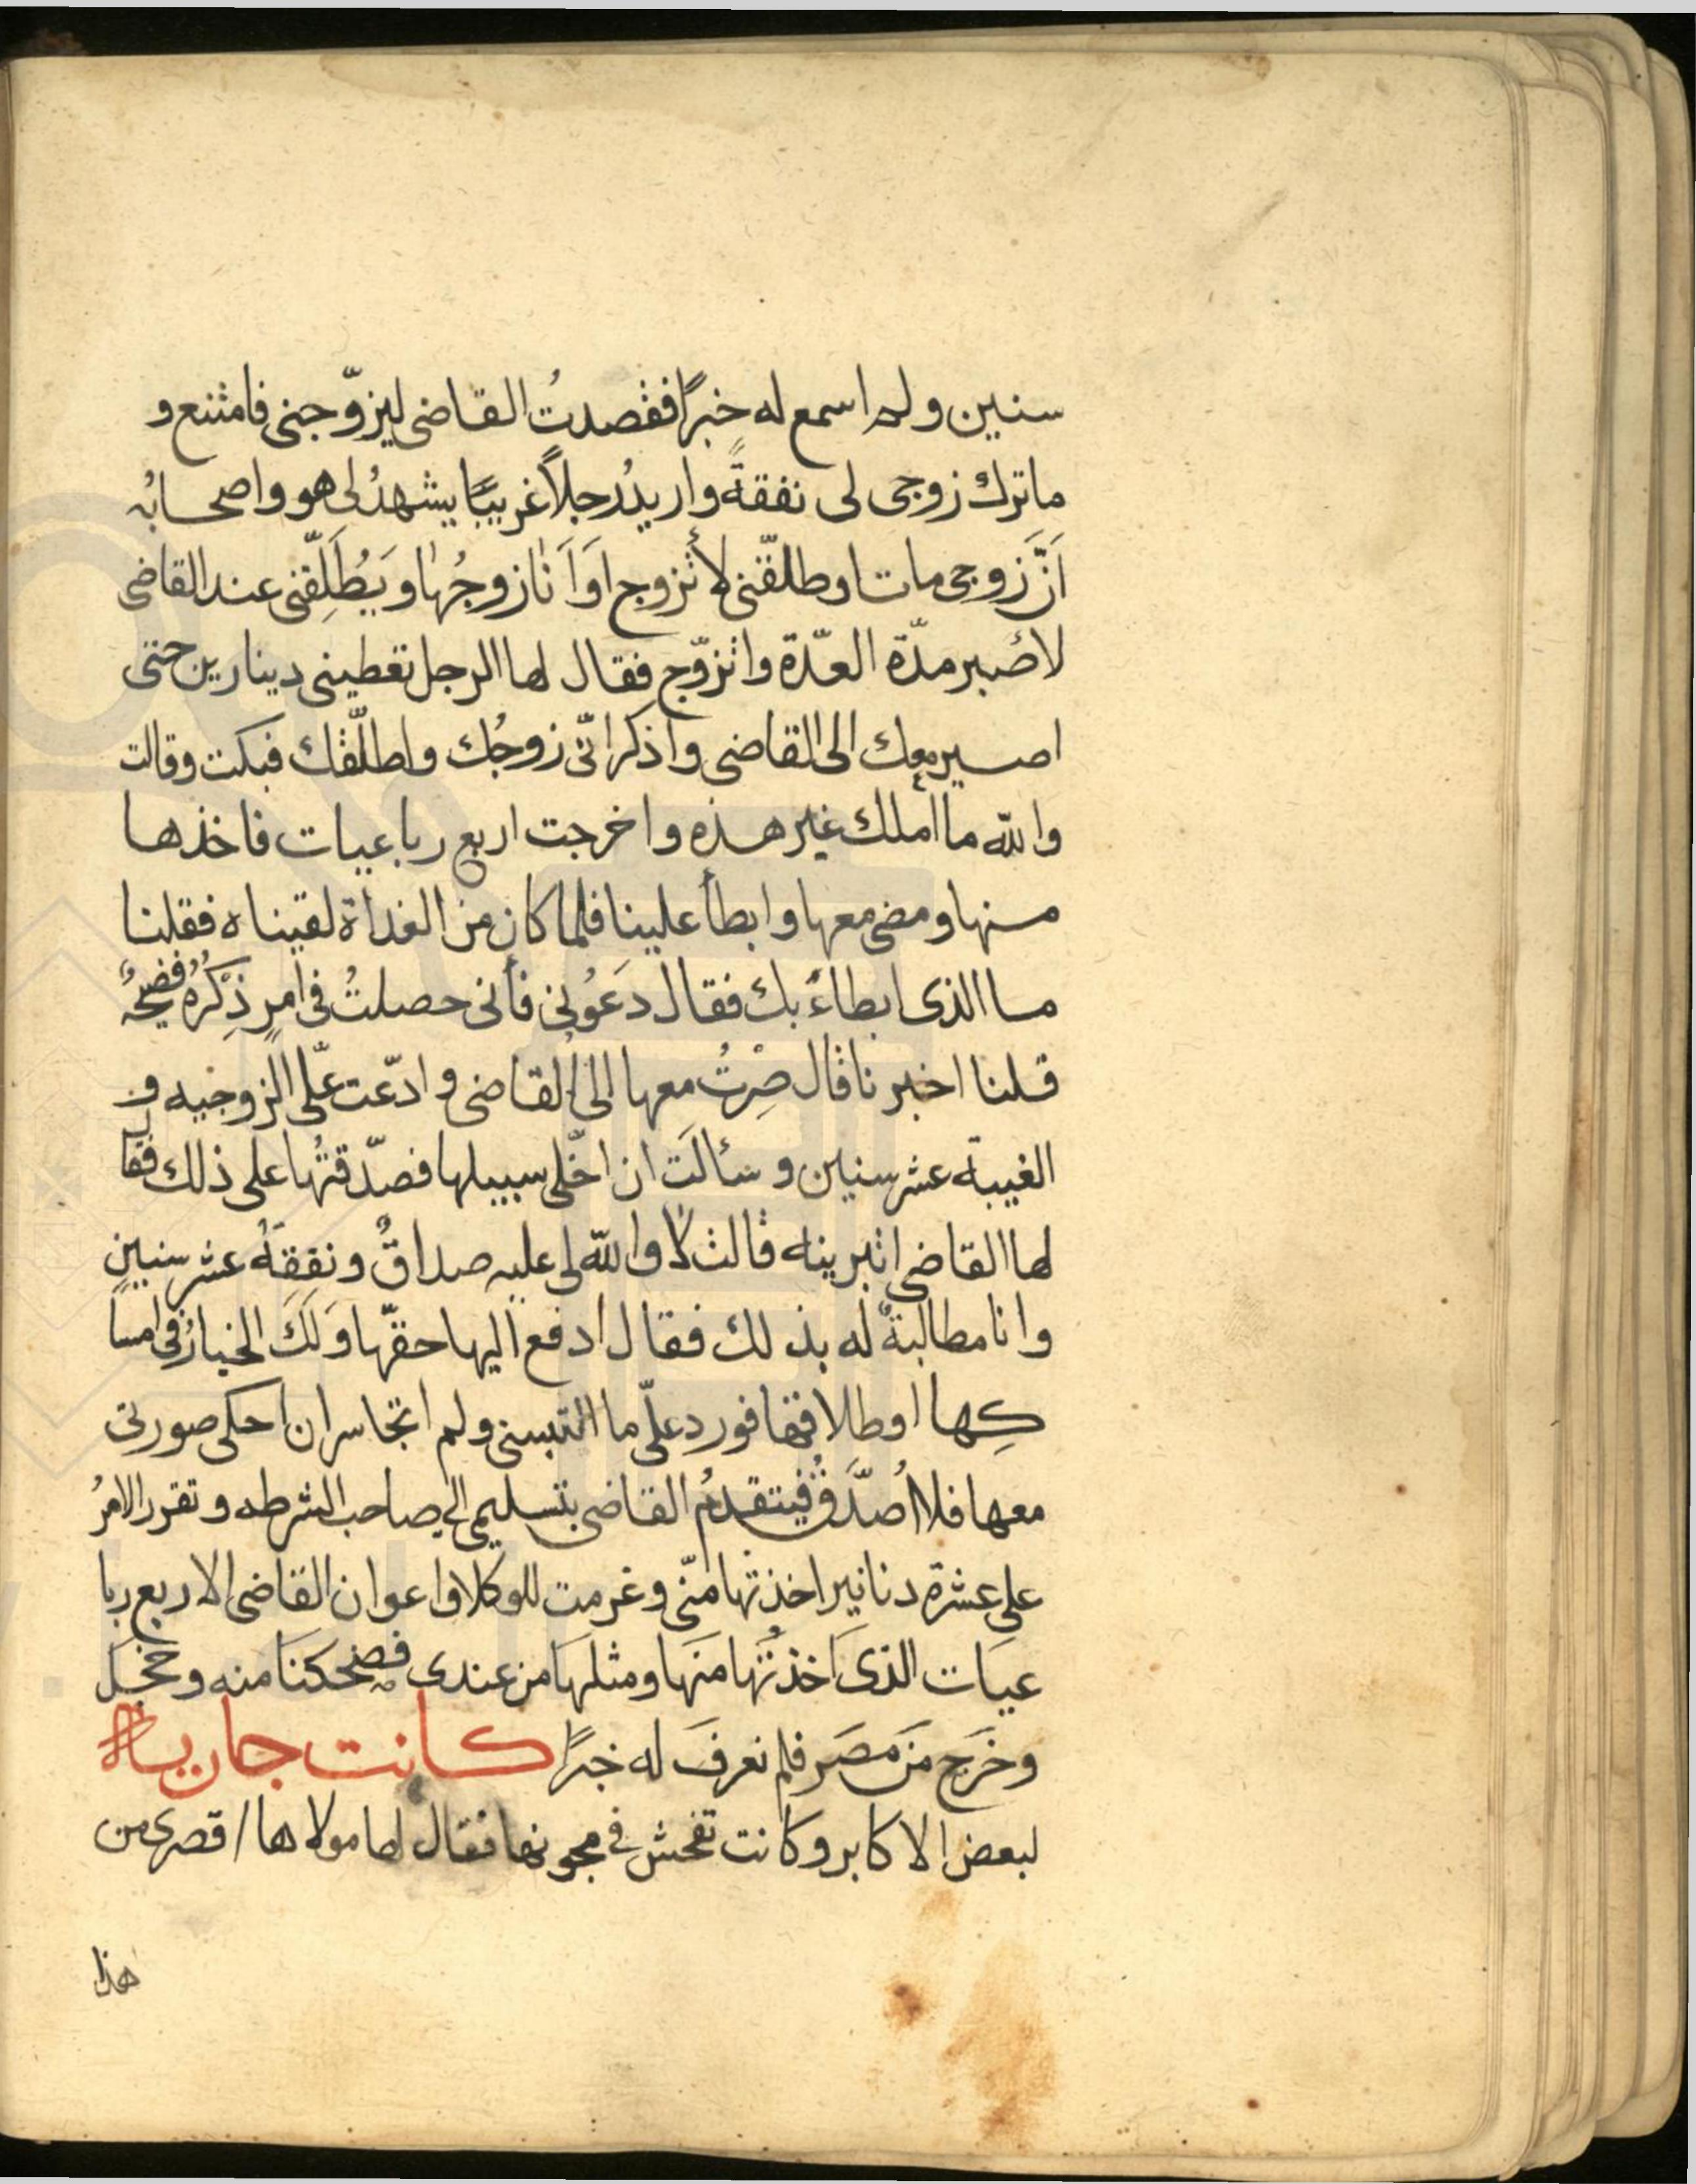 سنين ولم اسمع له خبرًا فقصدتُ القاضى ليزوّجنى فامتنع و
ما ترك زوجى لى نفقةً واريدُ رجلاً غريبًا يشهدُ لى هو واصحابُه
اَنَّ زوجى مات او طلقّنى لأتزوج اوَ اَنا زوجُها ويَُطَلِّقنى عند القاضى
لاصبر مدّة العدّة واتزوّج فقال لها الرجل تعطينى دينارين حتى
اصير معك الى القاضى واذكر انّى زوجُك واطلّقك فبكت وقالت
والله ما املك غير هذه واخرجت اربع رباعيات فاخذها
منها ومضى معها وابطأ علينا فلما كان من الغداة لقيناه فقلنا
ما الذى ابطاءَ بك فقال دَعَوُنى فأنى حصلتُ فى امرٍ ذِكْرُهُ فضيحةٌ
قلنا اخبرنا قال صِرْتُ معها الى القاضى وادّعت علّى الزوجيه و
الغيبة عشر سنين وسألَت ان اخّلى سبيلها فصدّقتُها على ذلك فقال
لها القاضى اتبرينه قالت لا والله لى عليه صداقٌ ونفقةُ عشر سنينٍ
وانا مطالبةٌ له بذلك فقال ادفع اليها حقّها وَلَكَ الخيارُ فى امسا
كِها او طلاقها فورد علّى ما التبسنى ولم اتجاسر ان احكى صورتى
معها فلا اُصدَّقُ فيتقدمُ القاضى بتسليمى الى صاحب الشرطه وتقرر الامرُ
على عشرة دنانير اخذتها منّى وغرمت للوكلا واعوان القاضى الاربع ربا
عيات الذى اخذتُها منها ومثلها من عندى فضحكنا منه وخجل
وخَرج من مصَر فلم نعرفَ له خبرًا كانت جارية
لبعض الاكابر وكانت تفحش فى مجونها فقال لها مولاها اقصرى من
هذا